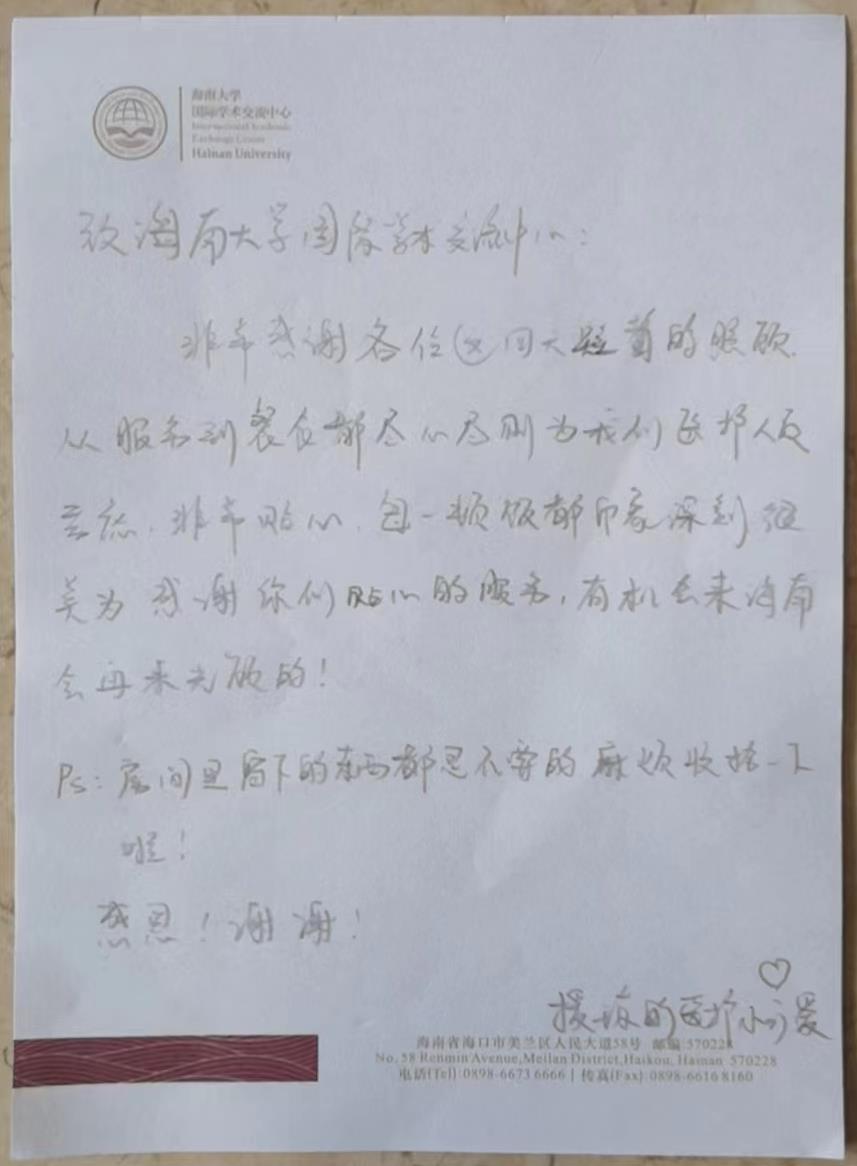 海南大学
国际学术交流中心
International Academic
Exchange Center
Hainan University
致海南大学国际学术交流中心：
非常感谢各位这回大的照顾.
从服务到餐食都尽心尽则为我们医护人员
考虑.非常贴心.每一顿饭都印象深刻很
美为 感谢你们贴心的服务,有机会来海南
会再来光顾的!
Ps:房间里留下的东西都是不要的麻烦收拾一下
啦!
感恩!谢谢!
♡
援琼的医护小可爱
海南省海口市美兰区人民大道58号 邮编:570228
No. 58 Renmin Avenue,Meilan District,Haikou, Hainan 570228
电话(Tel):0898-6673 6666 | 传真(Fax):0898-6616 8160